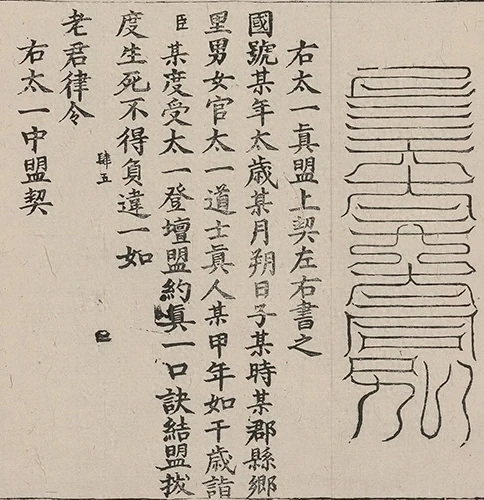 右太一真盟上契左右書之
國號某年太歲某月朔日子某時某郡縣鄉
里男女官太一道士真人某甲年如干歲詣
臣某度受太一登壇盟約真一口訣結盟拔
度生死不得負違一如
老君律令
右太一中盟契
肆五